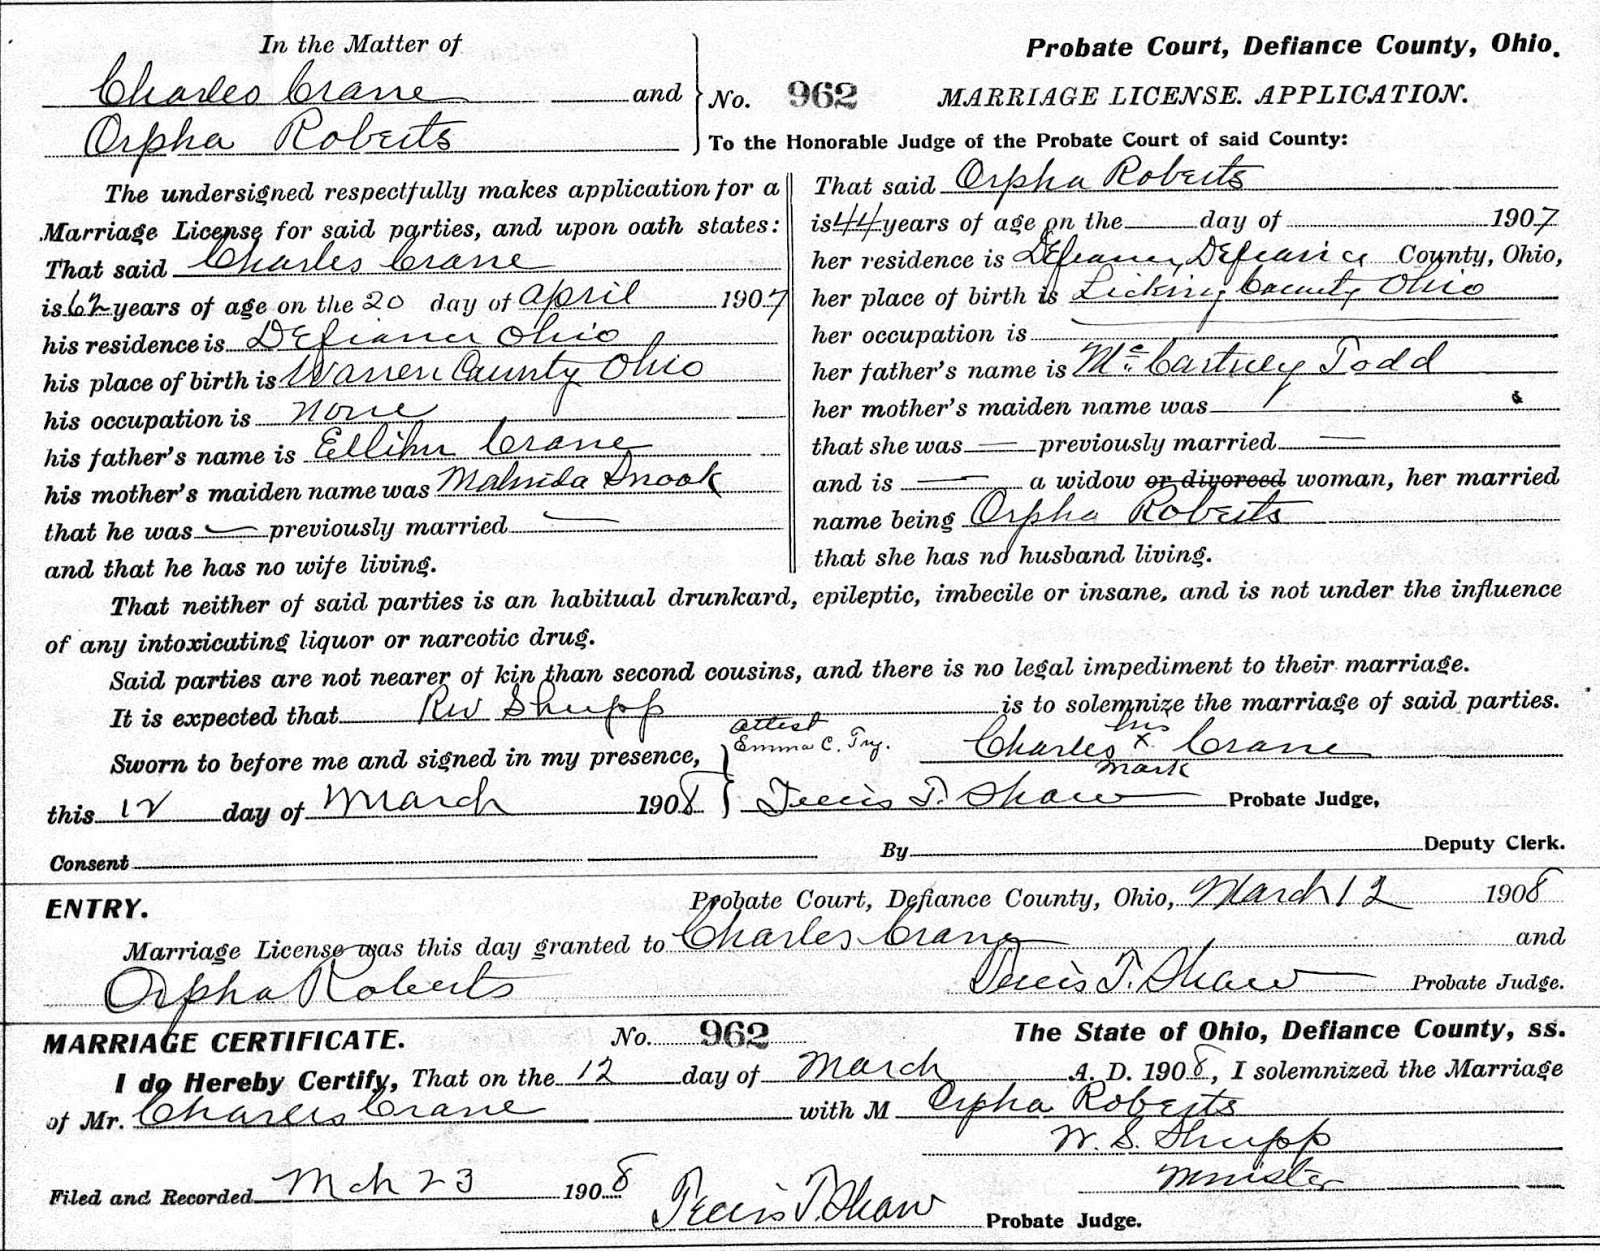 In the Matter of
Charles Crane and
Orpha Roberts
No. 962
Probate Court, Defiance County, Ohio.
MARRIAGE LICENSE. APPLICATION.
To the Honorable Judge of the Probate Court of said County:
The undersigned respectfully makes application for a
Marriage License for said parties, and upon oath states:
That said Charles Crane
is 62 years of age on the 20 day of April 1907
his residence is Defiance Ohio
his place of birth is Warren County Ohio
his occupation is none
his father's name is Ellihu Crane
his mother's maiden name was Snook
that he was — previously married —
and that he has no wife living.
That said Orpha Roberts
is 44 years of age on the day of 1907
her residence is Defiance, Defiance County, Ohio,
her place of birth is Licking County Ohio
her occupation is
her father's name is McCartney Todd
her mother's maiden name was —
that she was — previously married —
and is — a widow or divorced woman, her married
name being Orpha Roberts
that she has no husband living.
That neither of said parties is an habitual drunkard, epileptic, imbecile or insane, and is not under the influence
of any intoxicating liquor or narcotic drug.
Said parties are not nearer of kin than second cousins, and there is no legal impediment to their marriage.
It is expected that Rev Shupp is to solemnize the marriage of said parties.
Sworn to before me and signed in my presence,
this 12 day of March 1908
attest
Emma C.
his
Charles x Crane
mark
T. Shaw Probate Judge,
Consent
By Deputy Clerk.
ENTRY. Probate Court, Defiance County, Ohio, March 12 1908
Marriage License was this day granted to Charles Crane and
Orpha Roberts T. Shaw Probate Judge.
MARRIAGE CERTIFICATE. No. 962 The State of Ohio, Defiance County, ss.
I do Hereby Certify, That on the 12 day of March A. D. 1908, I solemnized the Marriage
of Mr. Charles Crane with M Orpha Roberts
W. S. Shupp
Minister
Filed and Recorded Mch 23 1908 T. Shaw Probate Judge.